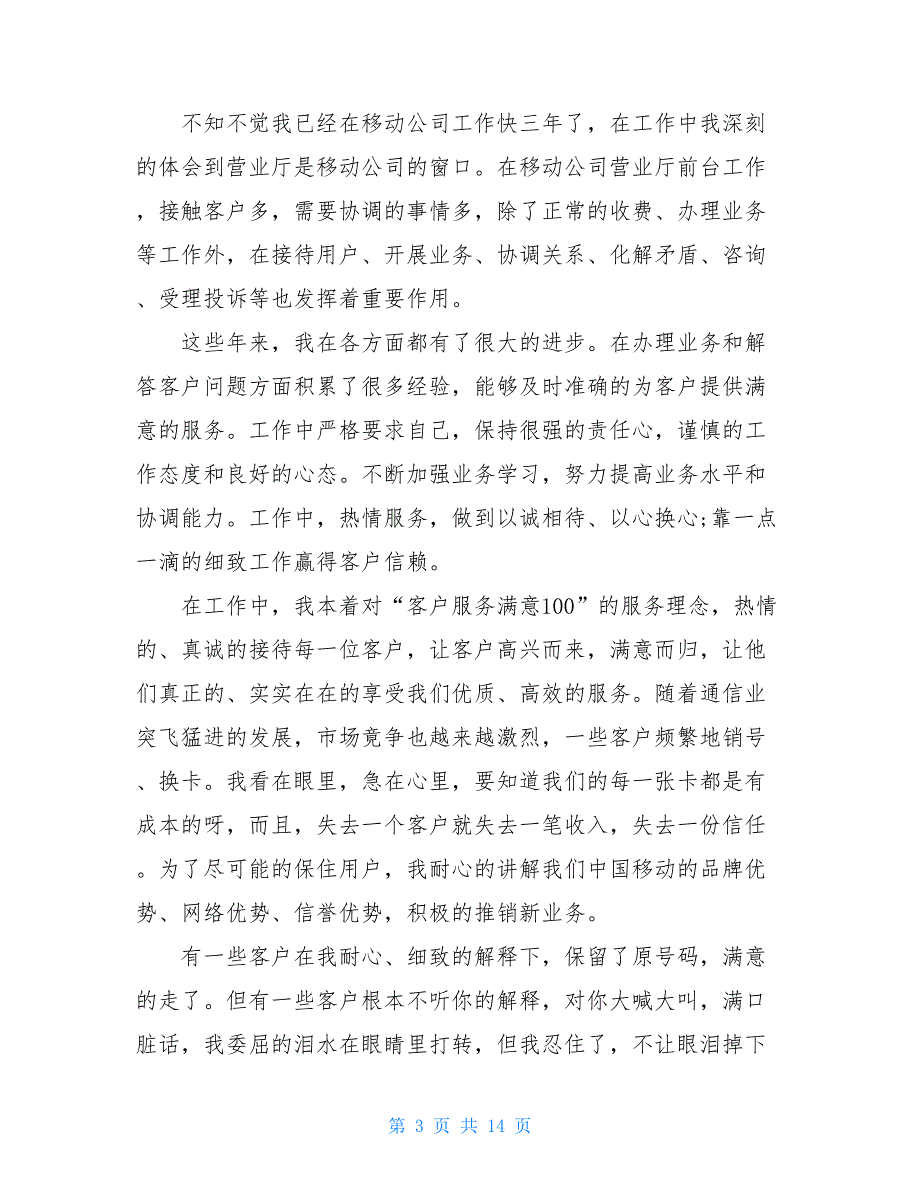 不知不觉我已经在移动公司工作快三年了，在工作中我深刻
的体会到营业厅是移动公司的窗口。在移动公司营业厅前台工作
，接触客户多，需要协调的事情多，除了正常的收费、办理业务
等工作外，在接待用户、开展业务、协调关系、化解矛盾、咨询
、受理投诉等也发挥着重要作用。
这些年来，我在各方面都有了很大的进步。在办理业务和解
答客户问题方面积累了很多经验，能够及时准确的为客户提供满
意的服务。工作中严格要求自己，保持很强的责任心，谨慎的工
作态度和良好的心态。不断加强业务学习，努力提高业务水平和
协调能力。工作中，热情服务，做到以诚相待、以心换心;靠一点
一滴的细致工作赢得客户信赖。
在工作中，我本着对“客户服务满意100”的服务理念，热情
的、真诚的接待每一位客户，让客户高兴而来，满意而归，让他
们真正的、实实在在的享受我们优质、高效的服务。随着通信业
突飞猛进的发展，市场竞争也越来越激烈，一些客户频繁地销号
、换卡。我看在眼里，急在心里，要知道我们的每一张卡都是有
成本的呀，而且，失去一个客户就失去一笔收入，失去一份信任
。为了尽可能的保住用户，我耐心的讲解我们中国移动的品牌优
势、网络优势、信誉优势，积极的推销新业务。
有一些客户在我耐心、细致的解释下，保留了原号码，满意
的走了。但有一些客户根本不听你的解释，对你大喊大叫，满口
脏话，我委屈的泪水在眼睛里打转，但我忍住了，不让眼泪掉下
第 3 页 共 14 页